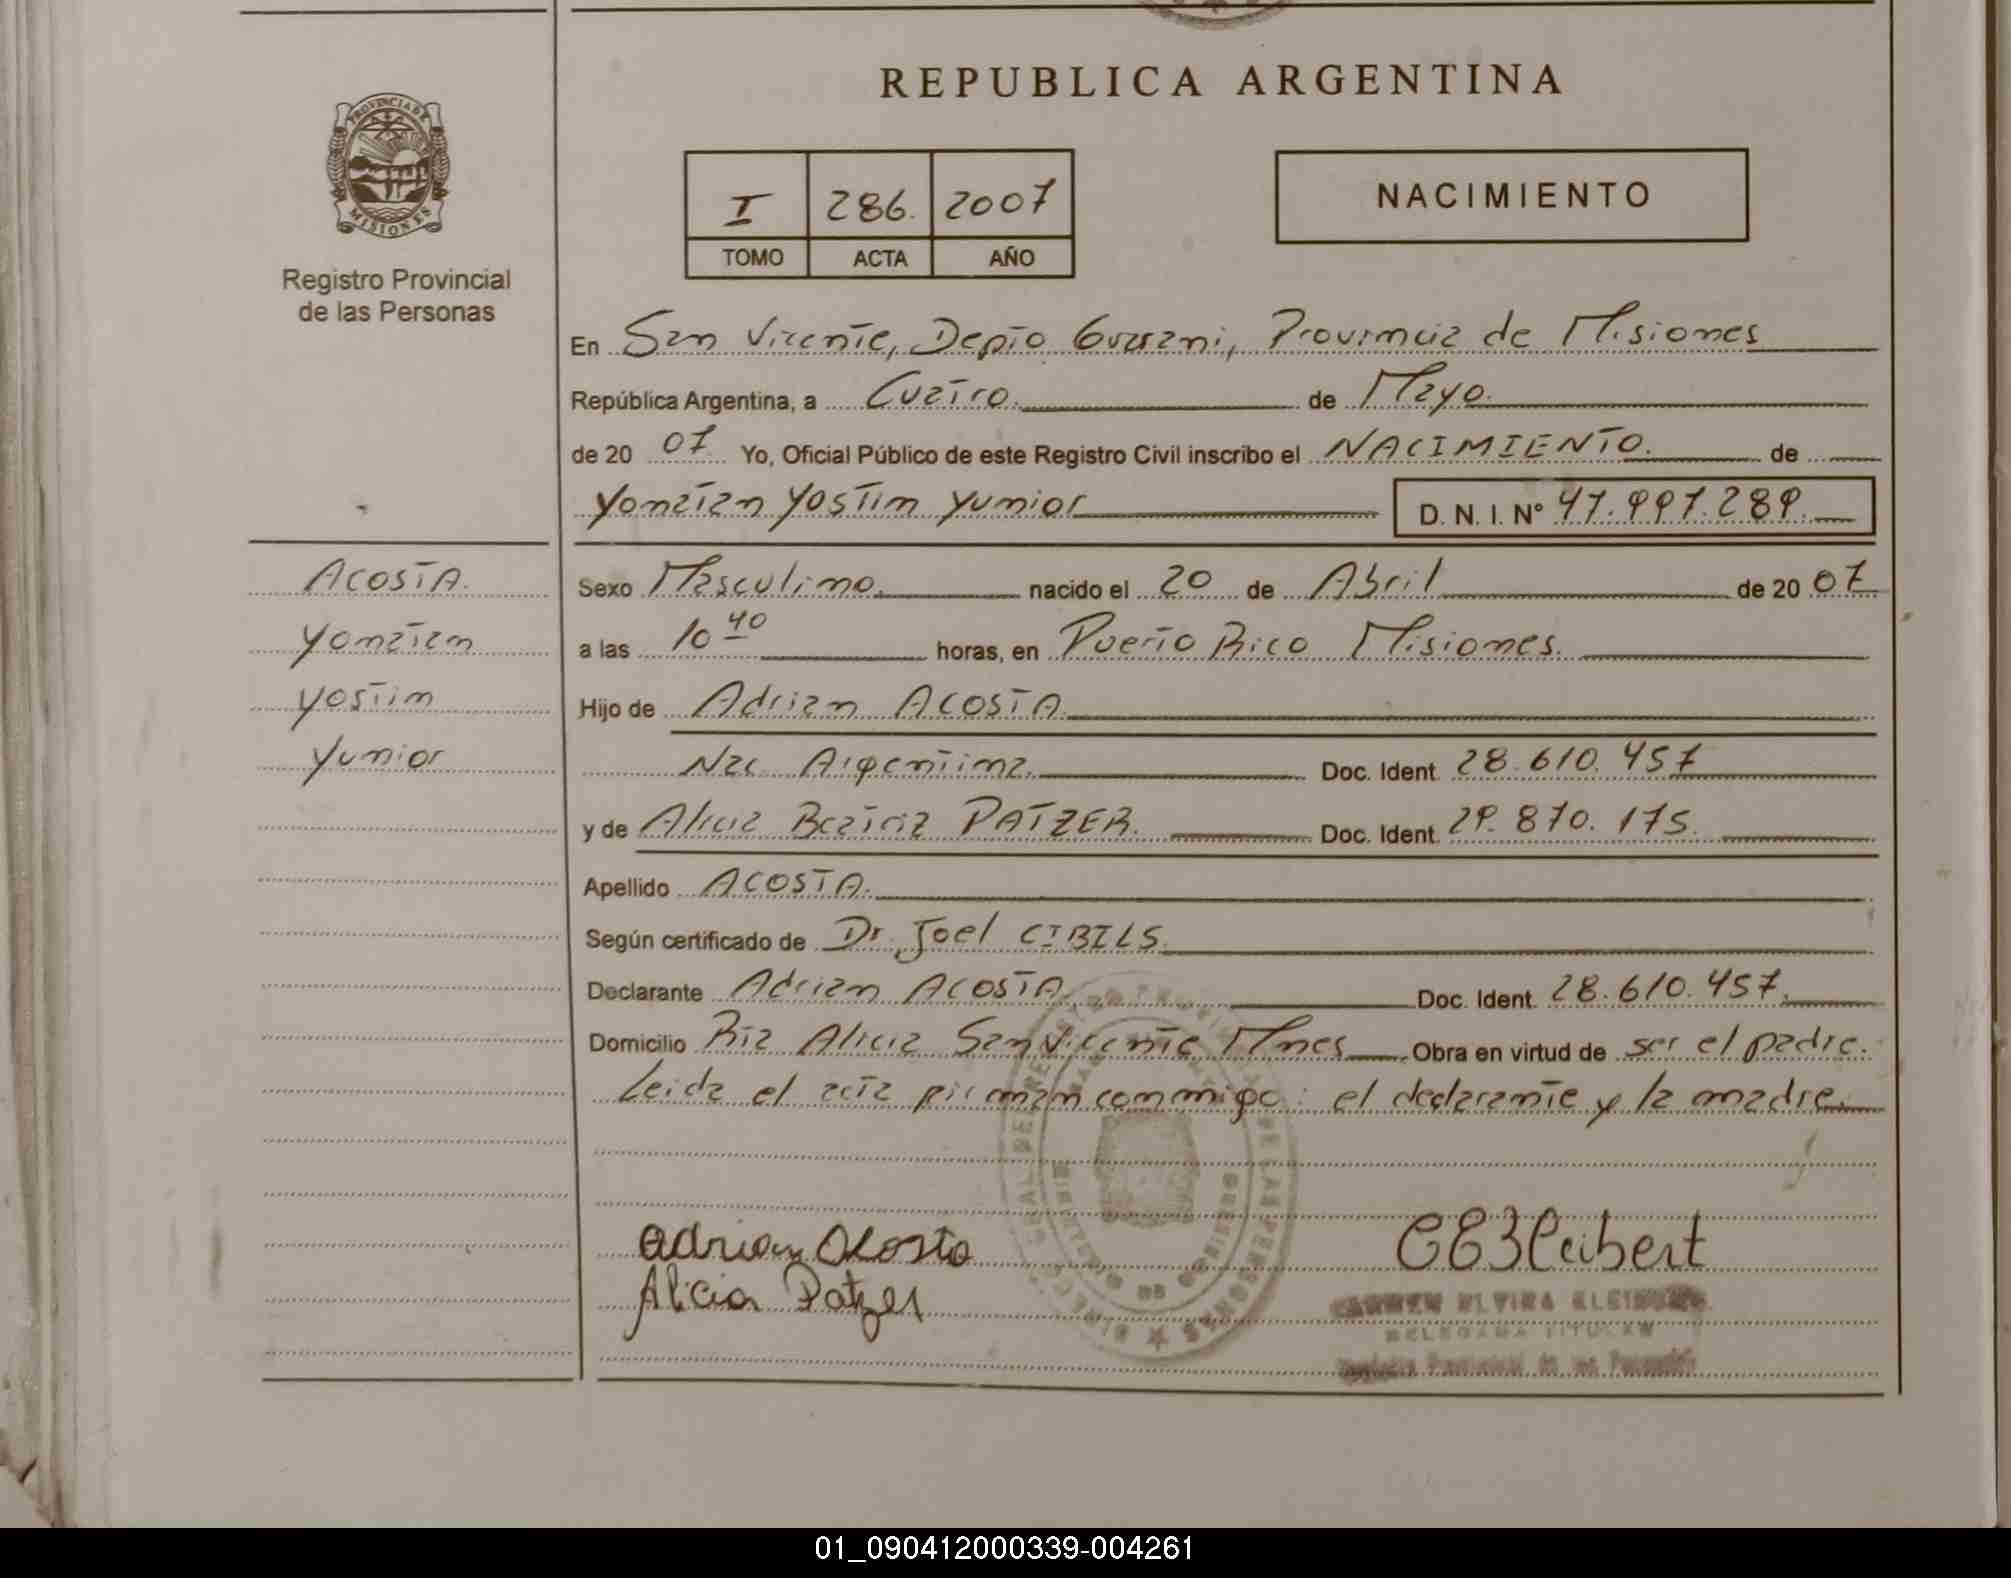 REPUBLICA ARGENTINA
PROVINCIA DE
MISIONES
Registro Provincial
de las Personas
I 286. 2007
TOMO ACTA AÑO
NACIMIENTO
En San Vicente, Depto Guarani, Provincia de Misiones
República Argentina, a Cuatro. de Mayo.
de 20 07 Yo, Oficial Público de este Registro Civil inscribo el NACIMIENTO. de
Yonatan Yostin Yunior D. N. I. Nº 47.997.289.
ACOSTA.
Yonatan
Yostin
Yunior
Sexo Masculino. nacido el 20 de Abril de 20 07
a las 10 40 horas, en Puerto Rico Misiones.
Hijo de Adrian ACOSTA
Nac Argentina. Doc. Ident. 28.610.457
y de Alicia Beatriz PATZER. Doc. Ident. 29.870.175.
Apellido ACOSTA.
Según certificado de Dr. Joel CIBILS.
Declarante Adrian ACOSTA Doc. Ident. 28.610.457.
Domicilio Bta Alicia San Vicente Mnes Obra en virtud de ser el padre.
Leida el acta firman conmigo: el declarante y la madre.
adrian Acosta
Alicia Patzer
DE LAS PERSONAS
CARMEN ELVIRA
DELEGADA TITULAR
Provincial de las Personas
01_090412000339-004261